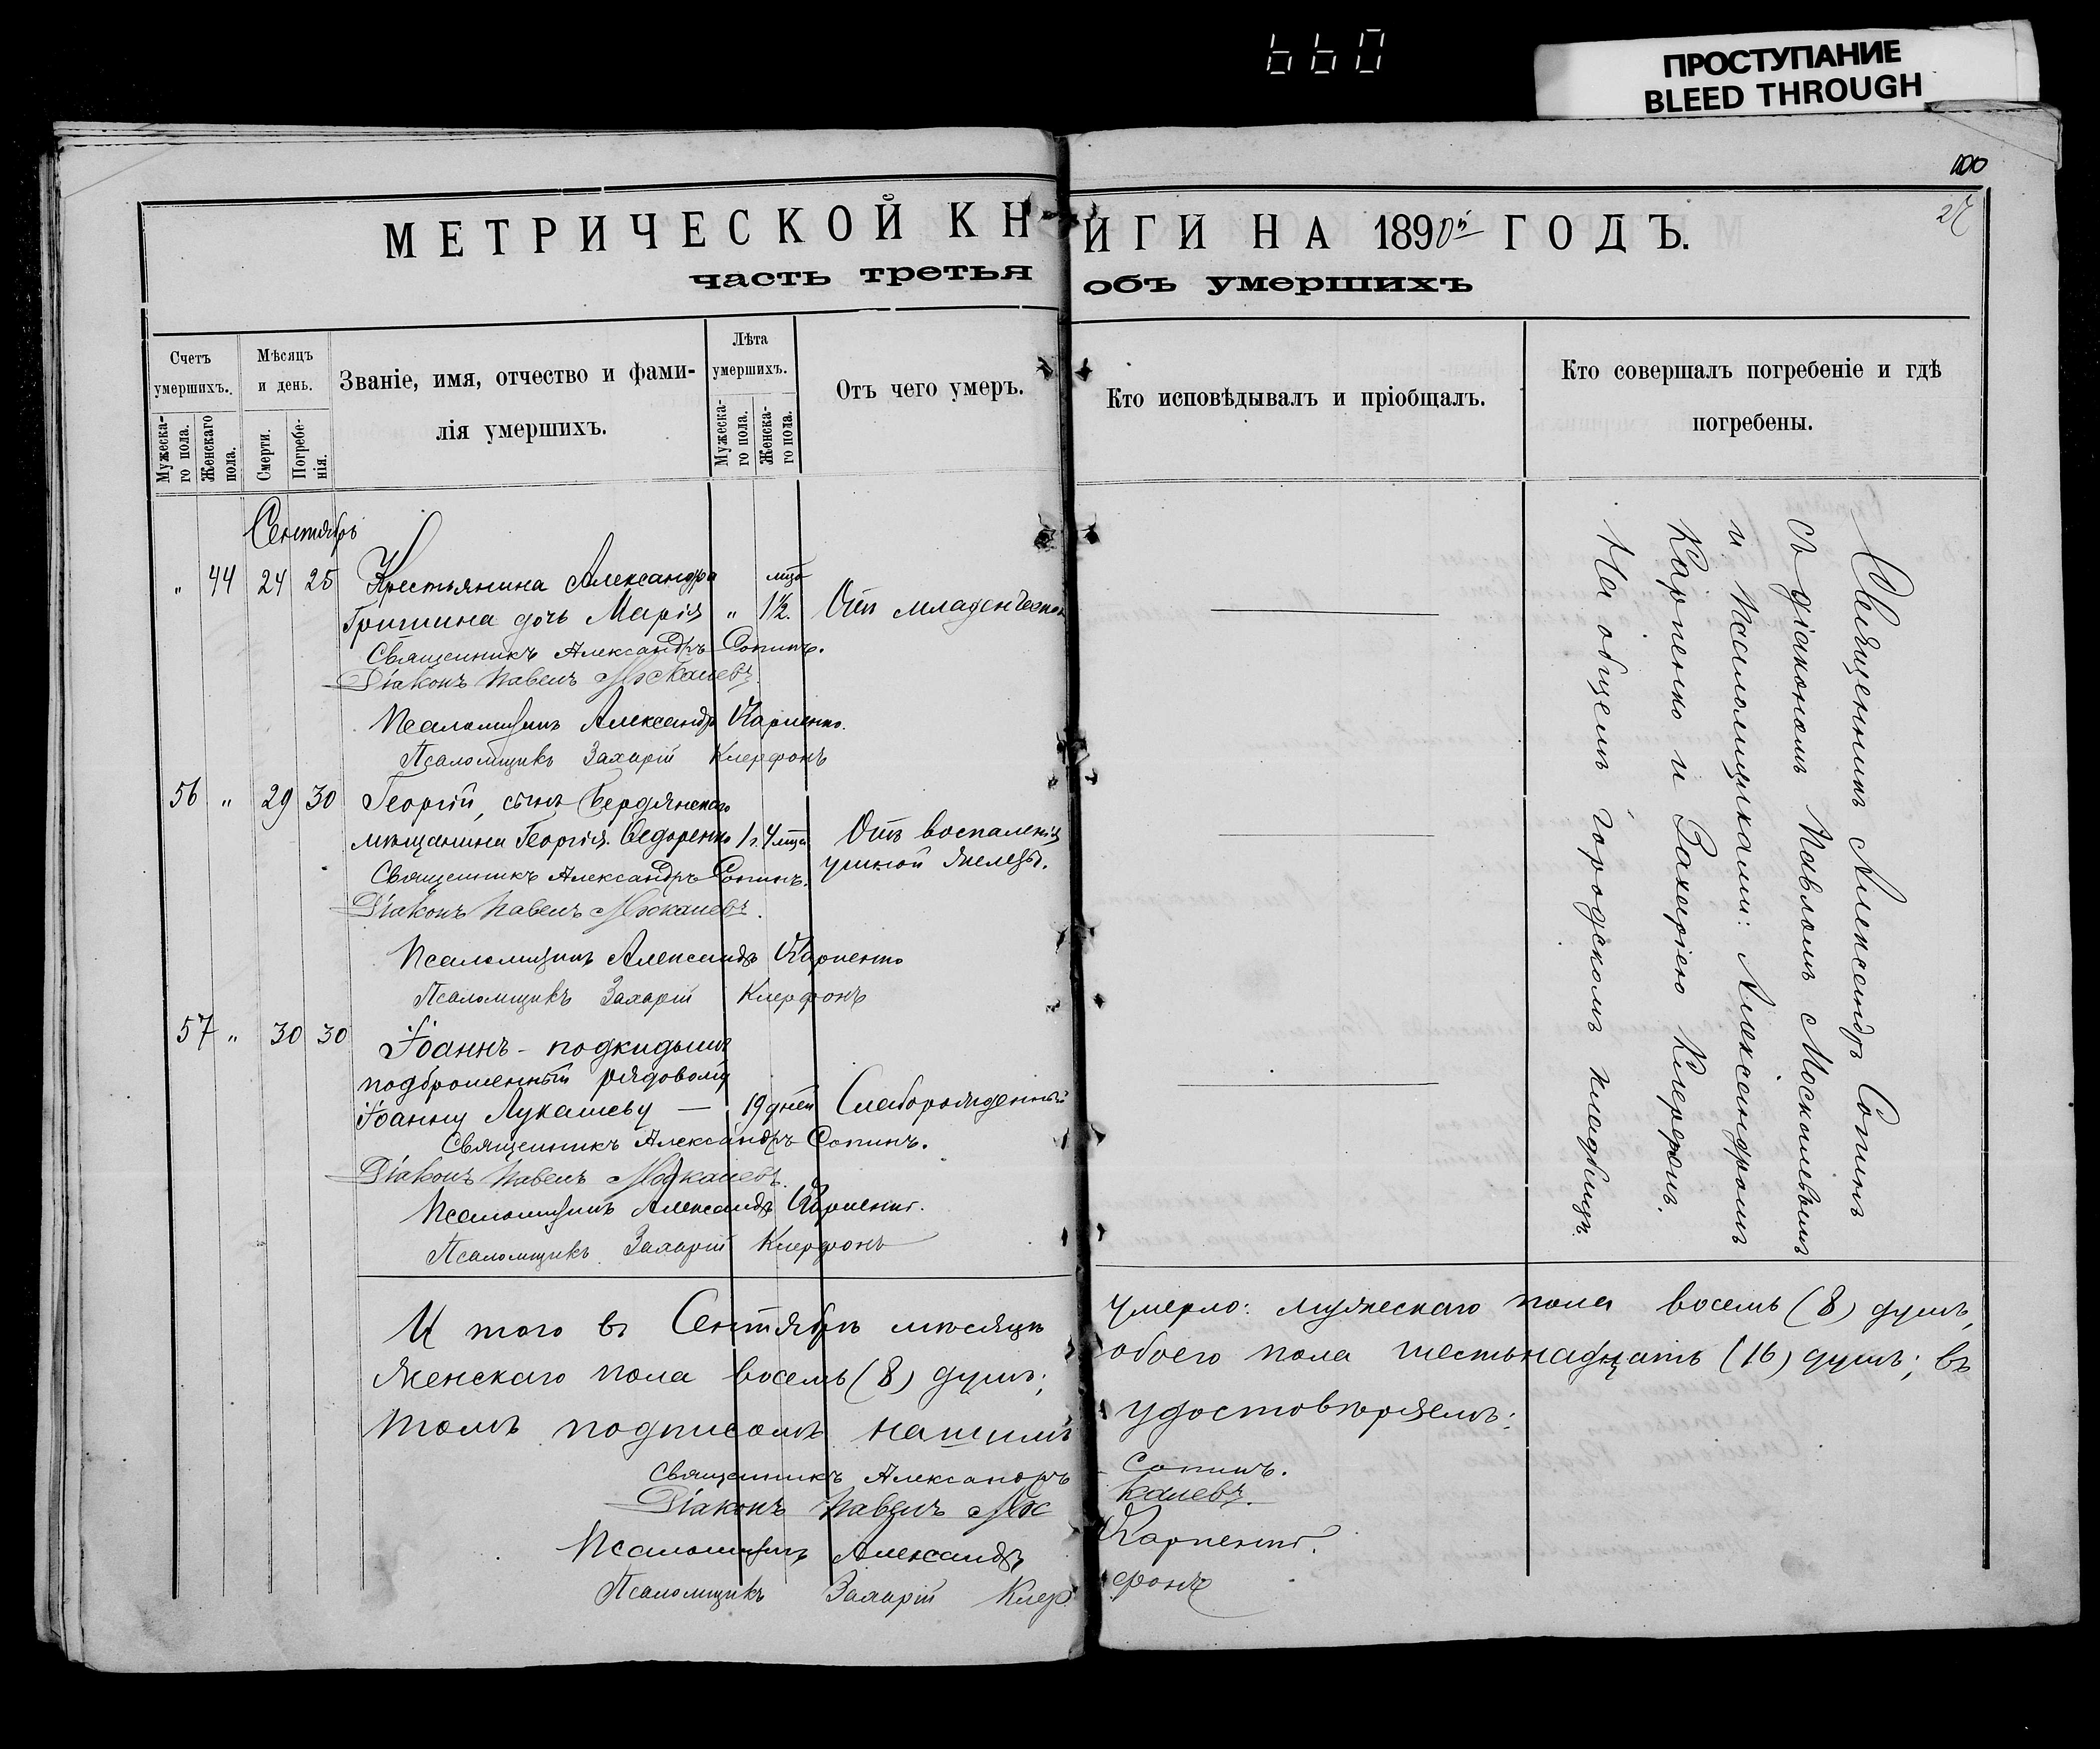 660
ПРОСТУПАНИЕ
BLEED THROUGH
100
27
МЕТРИЧЕСКОЙ КНИГИ НА 1890й ГОДЪ.
часть третья объ умершихъ
Счетъ умершихъ.
Мужеска-го пола.
Женскаго пола.
Мѣсяцъ и день.
Смерти.
Погребе-нія.
Званіе, имя, отчество и фами-
лія умершихъ.
Лѣта умершихъ.
Мужеска-го пола.
Женска-го пола.
Отъ чего умеръ.
Кто исповѣдывалъ и пріобщалъ.
Кто совершалъ погребеніе и гдѣ
погребены.
Сентябрь
" 44 24 25 Крестьянина Александра мца
Гришина дочь Марія " 1½. Отъ младенческой
Священникъ Александръ Сопинъ.
Діаконъ Павелъ Москалевъ.
Псаломщикъ Александръ Карпенко.
Псаломщикъ Захарій Клерфонъ
56 " 29 30 Георгій, сынъ Бердянскаго
мѣщанина Георгія Ѳедоренко 1 г. 4 мца Отъ воспаленія
ушной железы.
Священникъ Александръ Сопинъ.
Діаконъ Павелъ Москалевъ.
Псаломщикъ Александръ Карпенко
Псаломщикъ Захарій Клерфонъ
57 " 30 30 Іоаннъ - подкидышъ
подброшенный рядовому
Іоанну Лукашеву — 19 дней Слаборожденный
Священникъ Александръ Сопинъ.
Діаконъ Павелъ Москалевъ.
Псаломщикъ Александръ Карпенко.
Псаломщикъ Захарій Клерфонъ
Священникъ Александръ Сопинъ
съ діакономъ Павломъ Москалевымъ
и Псаломщиками: Александромъ
Карпенко и Захаріею Клерфонъ.
На общемъ городскомъ кладбищѣ.
И того въ Сентябрѣ мѣсяцѣ умерло: мужескаго пола восемь (8) душъ,
женскаго пола восемь (8) душъ; обоего пола шестьнадцать (16) душъ; въ
томъ подписомъ нашимъ удостовѣряемъ:
Священникъ Александръ Сопинъ.
Діаконъ Павелъ Москалевъ.
Псаломщикъ Александръ Карпенко.
Псаломщикъ Захарій Клерфонъ